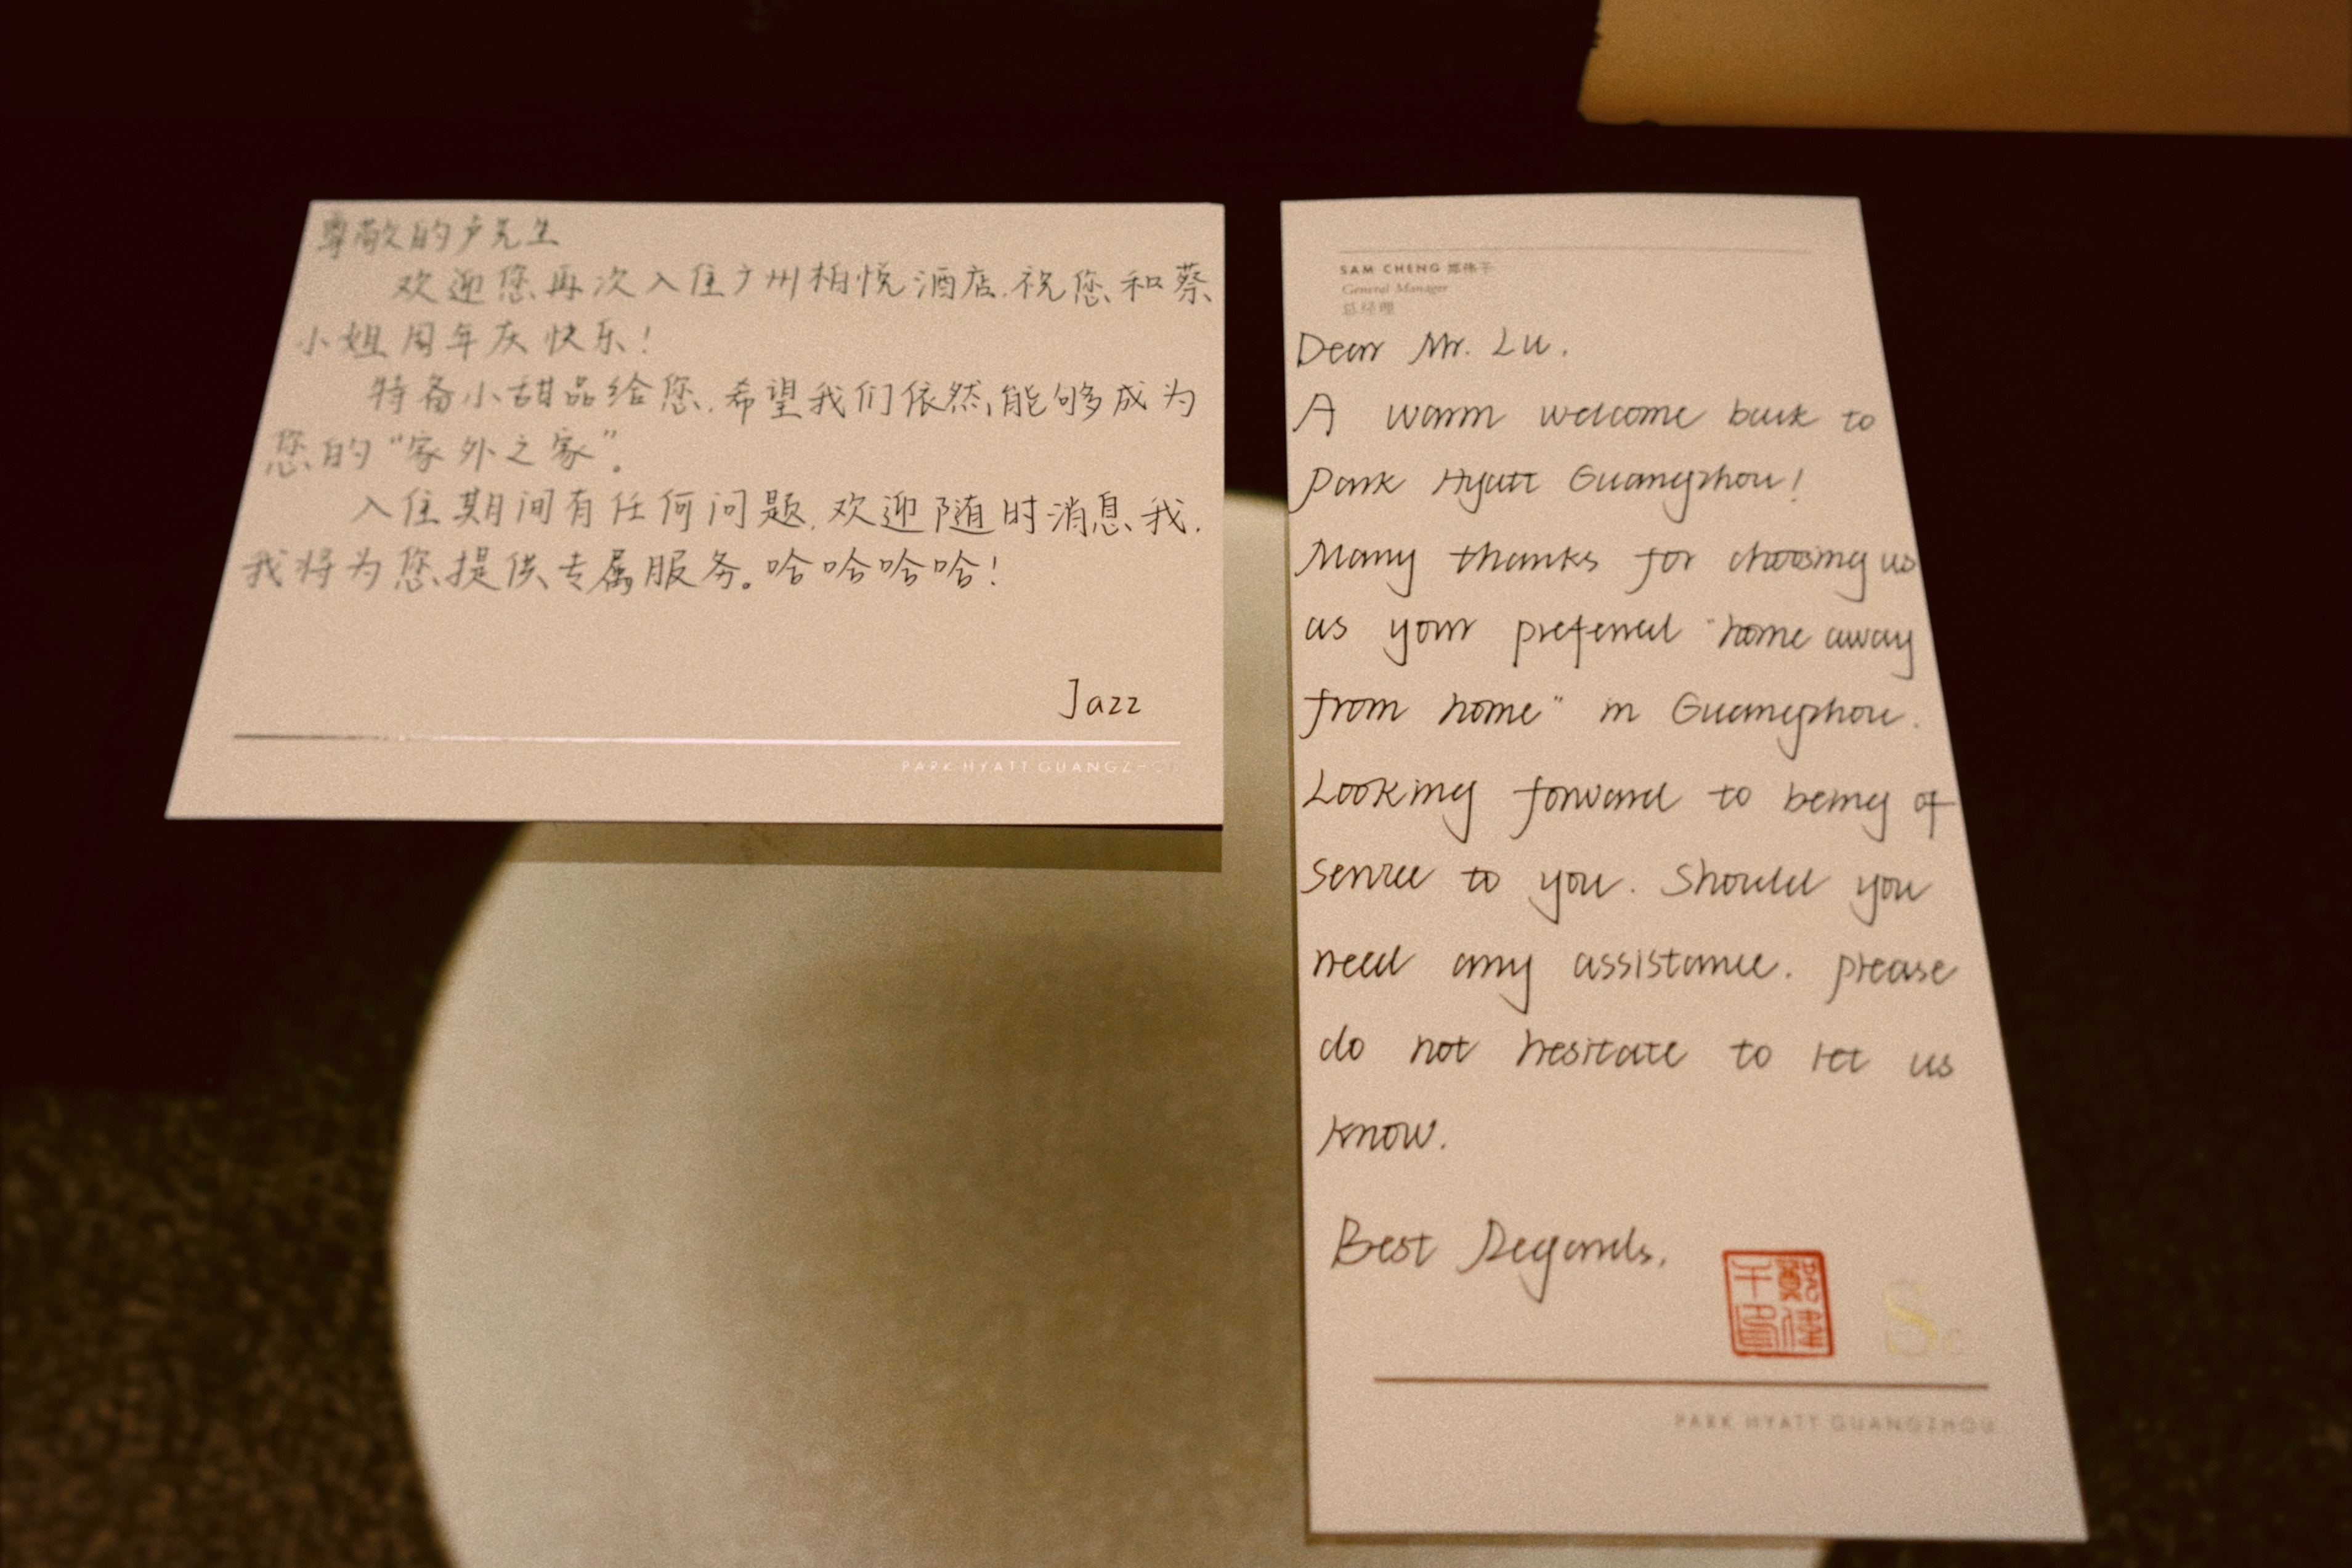 尊敬的卢先生
欢迎您再次入住广州柏悦酒店.祝您和蔡
小姐周年庆快乐!
特备小甜品给您.希望我们依然能够成为
您的“家外之家”。
入住期间有任何问题.欢迎随时消息我.
我将为您提供专属服务。哈哈哈哈!
Jazz
PARK HYATT GUANGZHOU
SAM CHENG 郑伟千
General Manager
总经理
Dear Mr. Lu.
A warm welcome back to
Park Hyatt Guangzhou!
Many thanks for choosing us
as your preferred "home away
from home" in Guangzhou.
Looking forward to being of
service to you. Should you
need any assistance. please
do not hesitate to let us
know.
Best Regards,
PARK HYATT GUANGZHOU